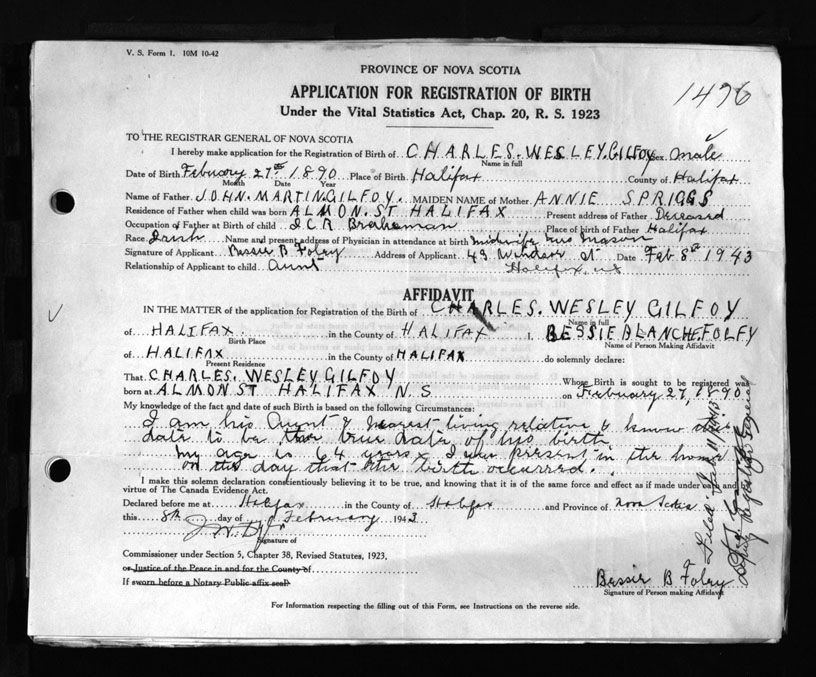 V. S. Form 1. 10M 10-42
PROVINCE OF NOVA SCOTIA
1496
APPLICATION FOR REGISTRATION OF BIRTH
Under the Vital Statistics Act, Chap. 20, R. S. 1923
TO THE REGISTRAR GENERAL OF NOVA SCOTIA
I hereby make application for the Registration of Birth of CHARLES. WESLEY. GILFOY Sex male
Name in full
Date of Birth February 27th 1890 Place of Birth Halifax County of Halifax
Month Date Year
Name of Father JOHN. MARTIN GILFOY. MAIDEN NAME of Mother ANNIE SPRIGGS
Residence of Father when child was born ALMON. ST HALIFAX Present address of Father Deceased
Occupation of Father at Birth of child I.C.R Brakeman Place of birth of Father Halifax
Race Irish Name and present address of Physician in attendance at birth midwife Mrs Mason
Signature of Applicant Bessie B Foley Address of Applicant 49 Windsor St Date Feb 8th 1943
Relationship of Applicant to child Aunt Halifax NS
AFFIDAVIT
IN THE MATTER of the application for Registration of the Birth of CHARLES. WESLEY GILFOY
Name in full
of HALIFAX in the County of HALIFAX I, BESSIE BLANCHE FOLEY
Birth Place Name of Person Making Affidavit
of HALIFAX in the County of HALIFAX do solemnly declare:
Present Residence
That CHARLES. WESLEY GILFOY Whose Birth is sought to be registered was
born at ALMON ST HALIFAX N.S on February 27, 1890
My knowledge of the fact and date of such Birth is based on the following Circumstances:
I am his Aunt & nearest living relative & know this
date to be the true date of his birth
My age is 64 years & I was present in the home
on the day that the birth occurred.
I make this solemn declaration conscientiously believing it to be true, and knowing that it is of the same force and effect as if made under oath and by
virtue of The Canada Evidence Act.
Declared before me at Halifax in the County of Halifax and Province of Nova Scotia
this 8th day of February 1943
Signature of
Commissioner under Section 5, Chapter 38, Revised Statutes, 1923,
or Justice of the Peace in and for the County of
If sworn before a Notary Public affix seal
Bessie B Foley
Signature of Person making Affidavit
For Information respecting the filling out of this Form, see Instructions on the reverse side.
Deputy Registrar General